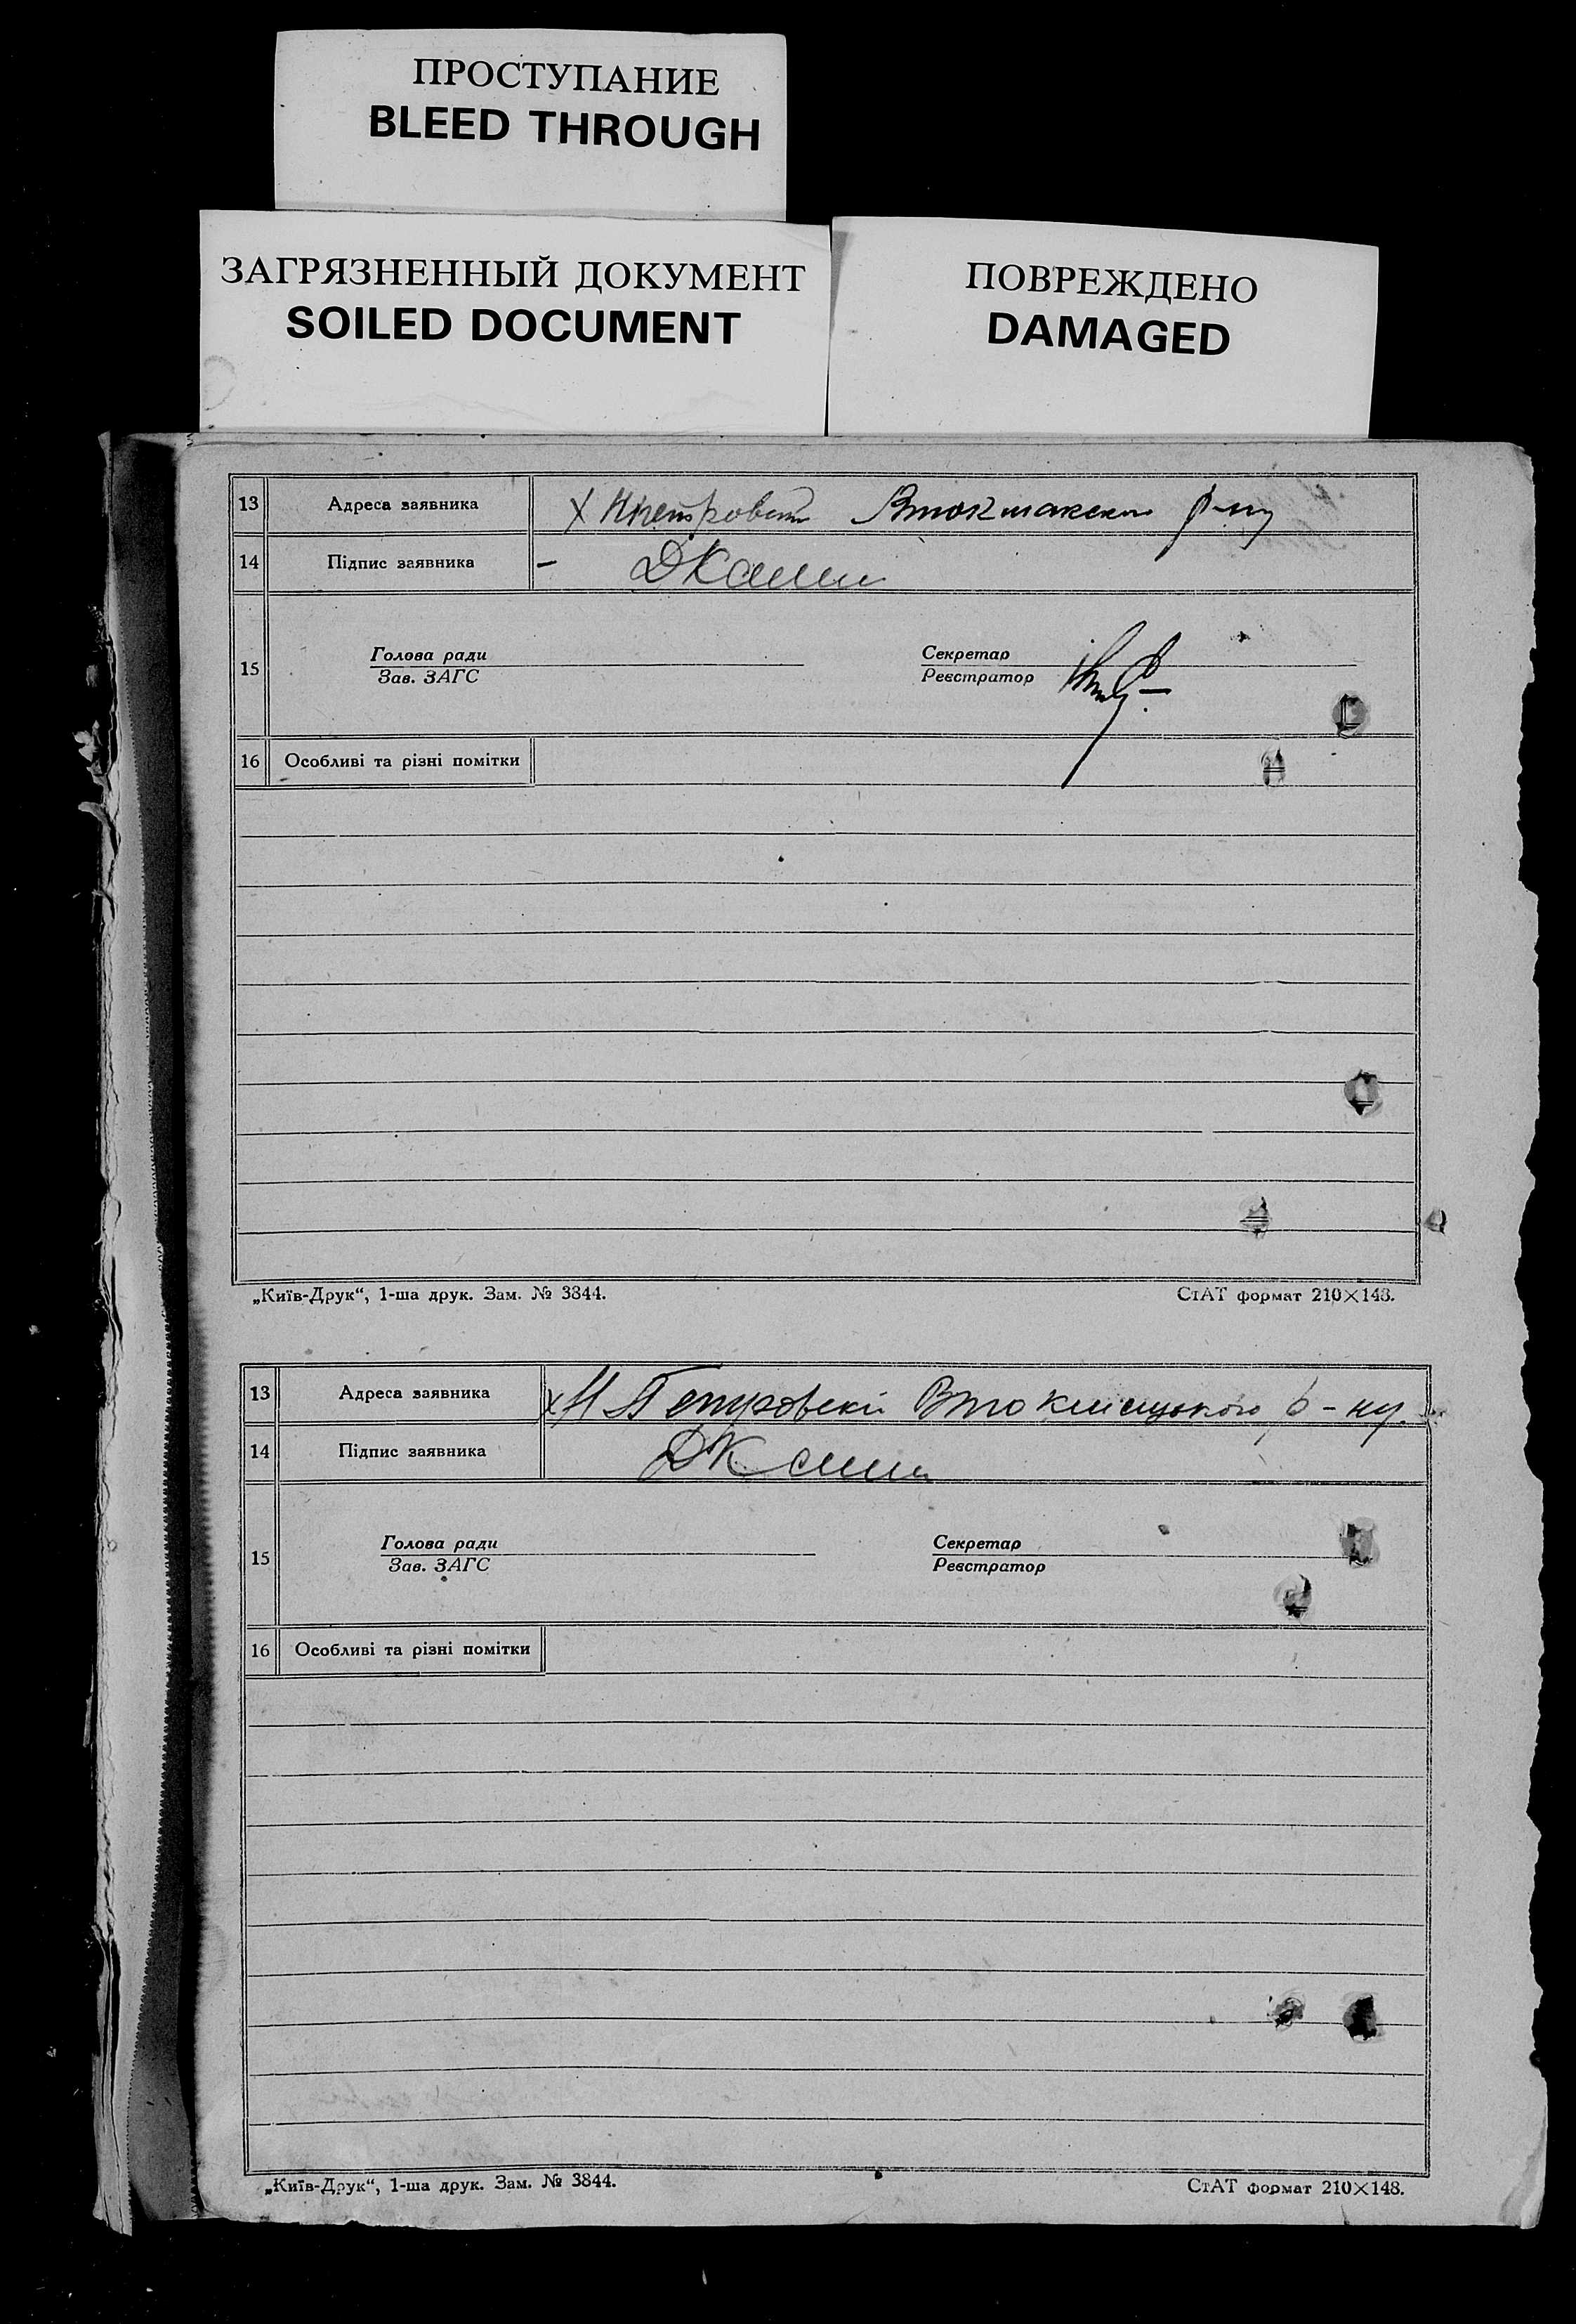 ПРОСТУПАНИЕ
BLEED THROUGH
ЗАГРЯЗНЕННЫЙ ДОКУМЕНТ
SOILED DOCUMENT
ПОВРЕЖДЕНО
DAMAGED
13 Адреса заявника Х р-ну
14 Підпис заявника
15 Голова ради Секретар
Зав. ЗАГС Реєстратор
16 Особливі та різні помітки
„Київ-Друк“, 1-ша друк. Зам. № 3844. СтАТ формат 210×148.
13 Адреса заявника х р-ну.
14 Підпис заявника
15 Голова ради Секретар
Зав. ЗАГС Реєстратор
16 Особливі та різні помітки
„Київ-Друк“, 1-ша друк. Зам. № 3844. СтАТ формат 210×148.